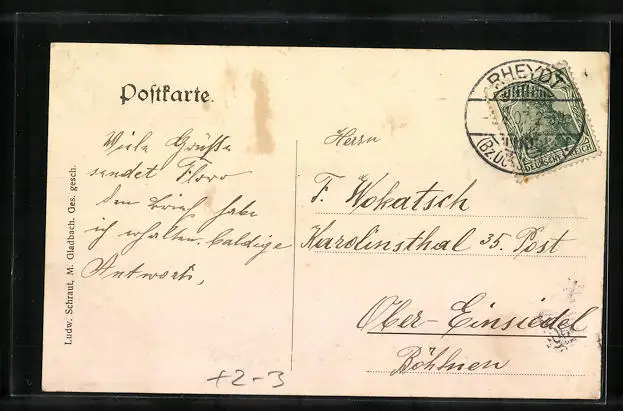 Postkarte.
RHEYDT
(Bz.
DEUTSCHES REICH
Ludw. Schraut, M. Gladbach. Ges. gesch.
Viele Grüße
sendet Flora
den Brief habe
ich erhalten. baldige
Antwort,
Herrn
F. Wokatsch
Karolinsthal 35. Post
Ober-Einsiedel
Böhmen
+2-3